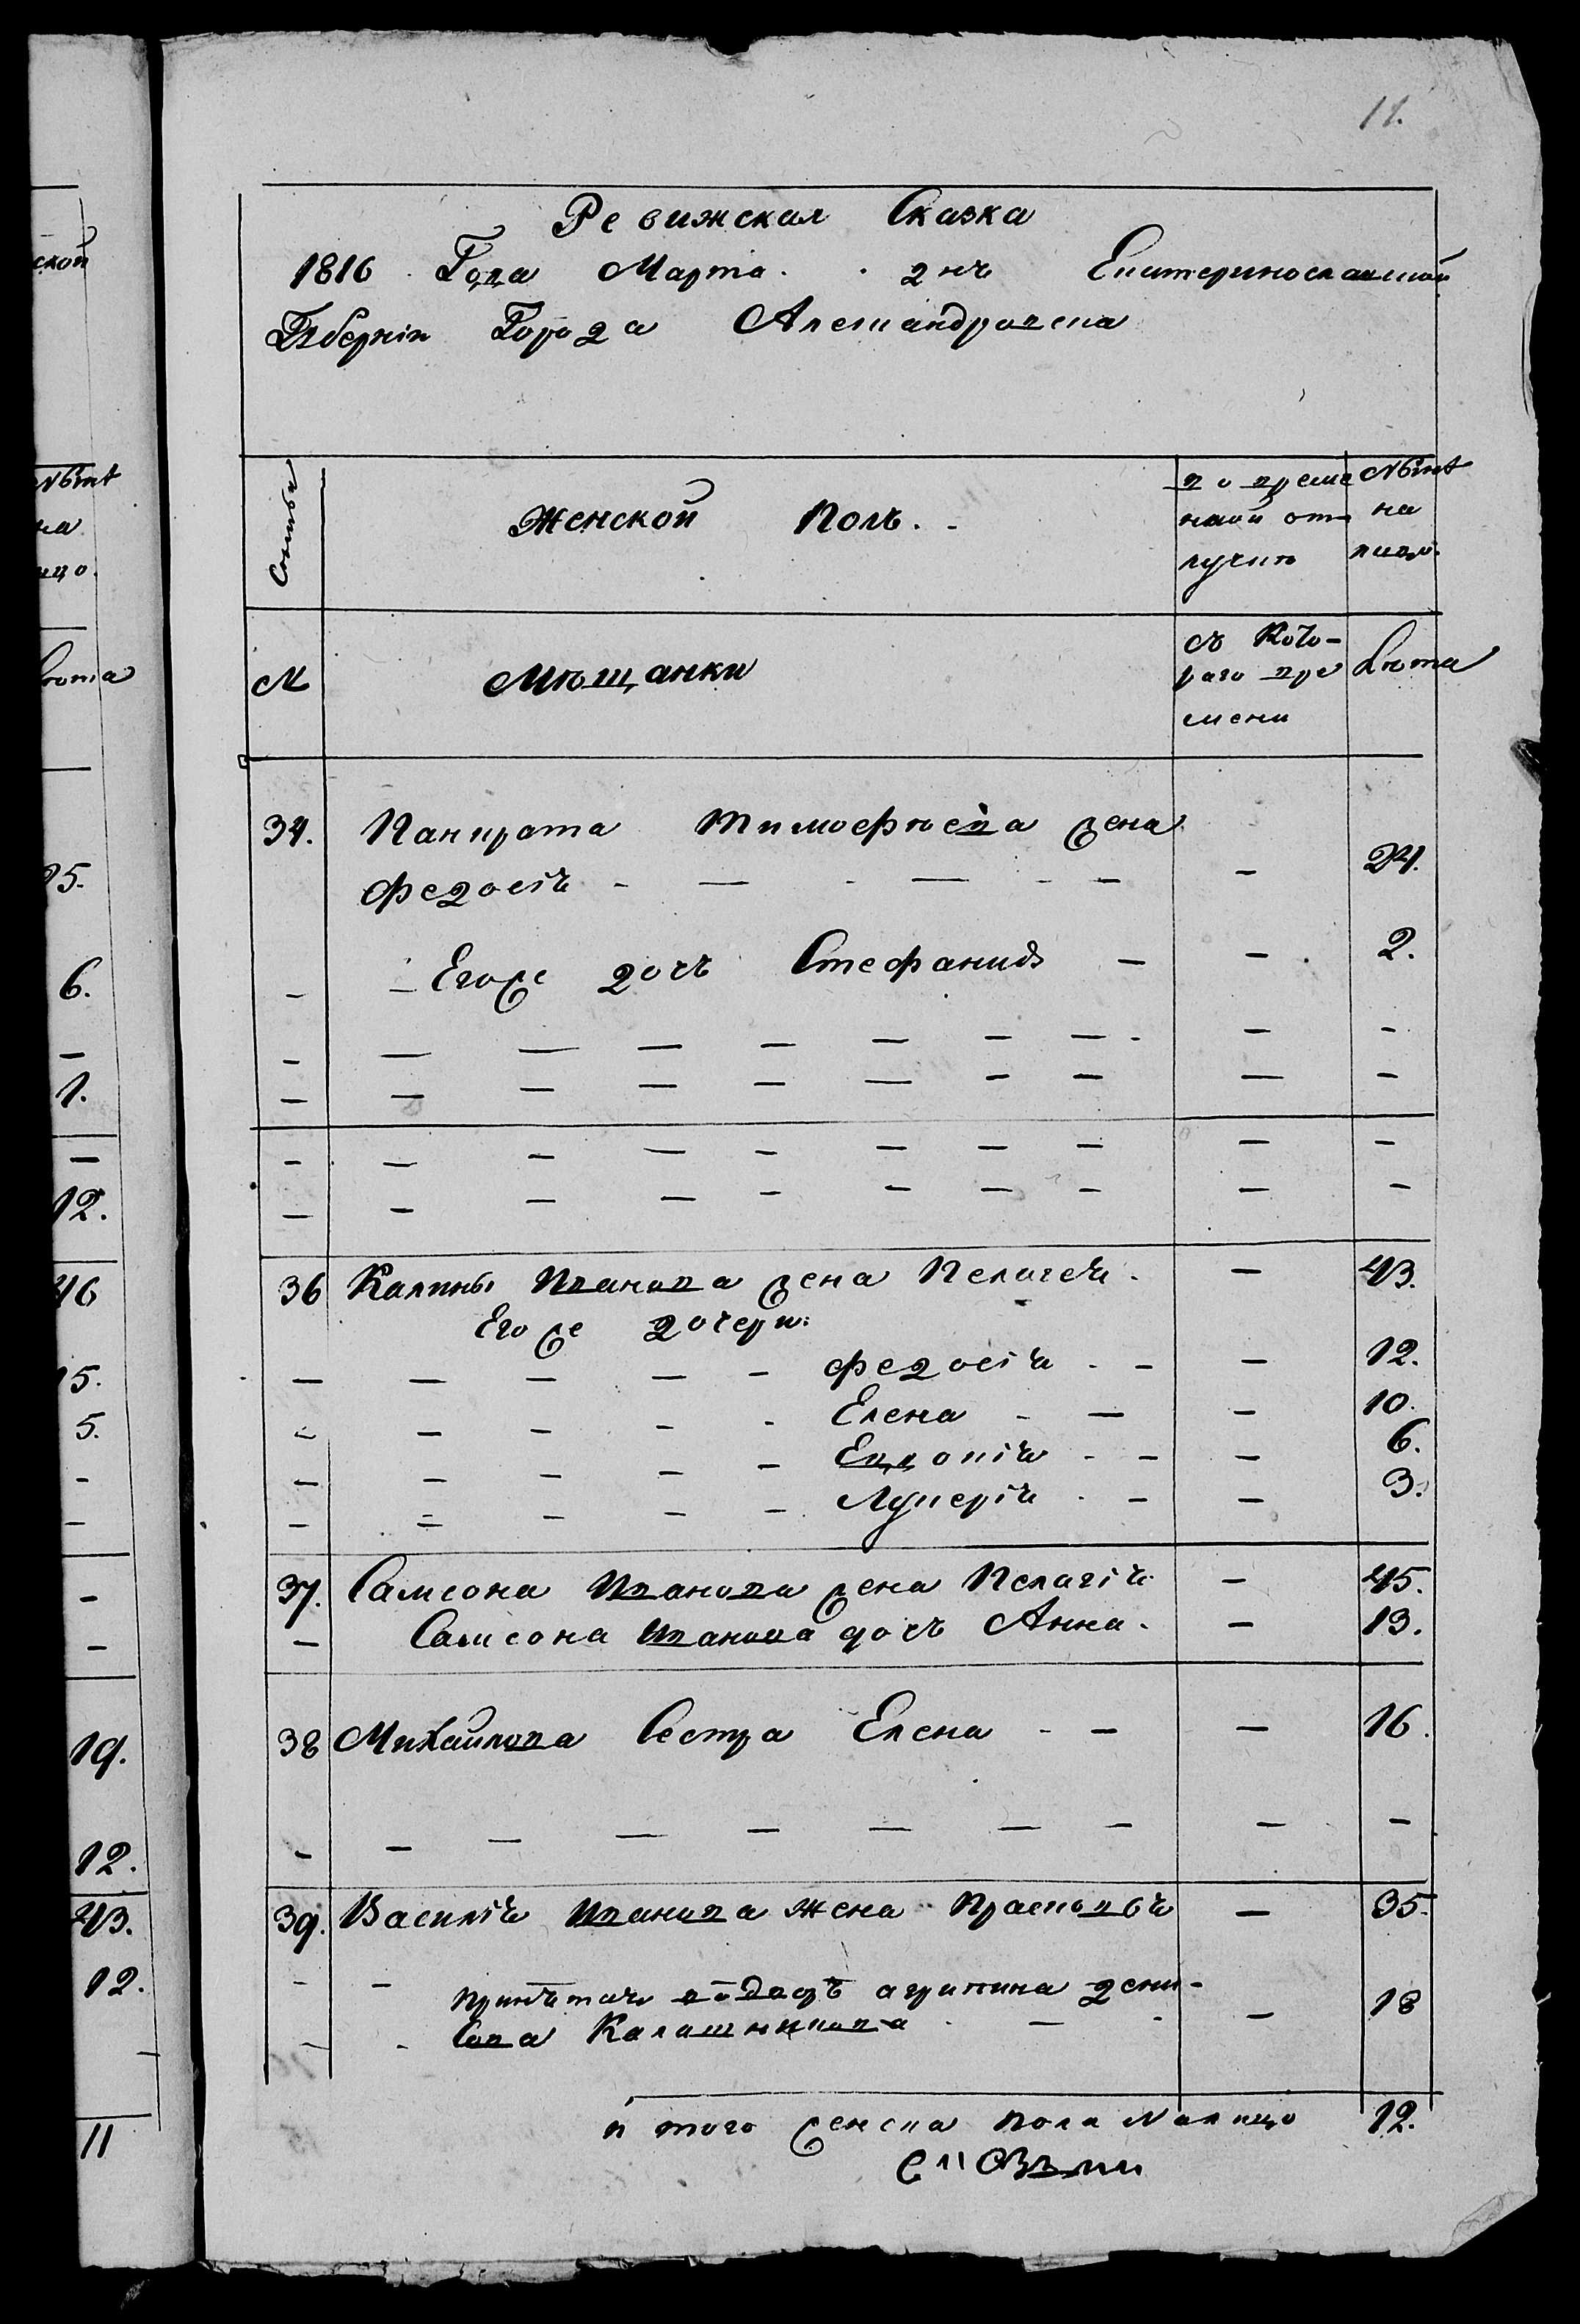 11.
Ревижская Сказка
1816 Года Марта 2 нъ Екатеринославской
Губерніи Города Александровска
Семьи
Женской Полъ.
во време
нной от
лучкѣ
Нынѣ
на
лицо.
№
Мѣщанки
съ Кото-
раго вре
мени
Лѣта
34. Панкрата Тимофѣева жена
Федосія - - - 24.
Егоже дочь Стефанида - - 2.
36 Калины Иванова жена Пелагея. - 43.
Егоже дочери:
Федосія - - 12.
Елена - - 10.
Евдокія - - 6.
Лукерія - - 3.
37. Самсона Иванова жена Пелагія - 45.
Самсона Иванова дочь Анна. - 13.
38 Михайлова Сестра Елена - - 16.
39. Василія Иванова жена Прасковья - 35.
агрипина дени-
сова Калашникова - - 18
и того женска пола Налицо 12.
ской
Нынѣ
на
ицо.
Лѣта
15.
6.
1.
12.
46
15.
5.
19.
12.
43.
12.
11